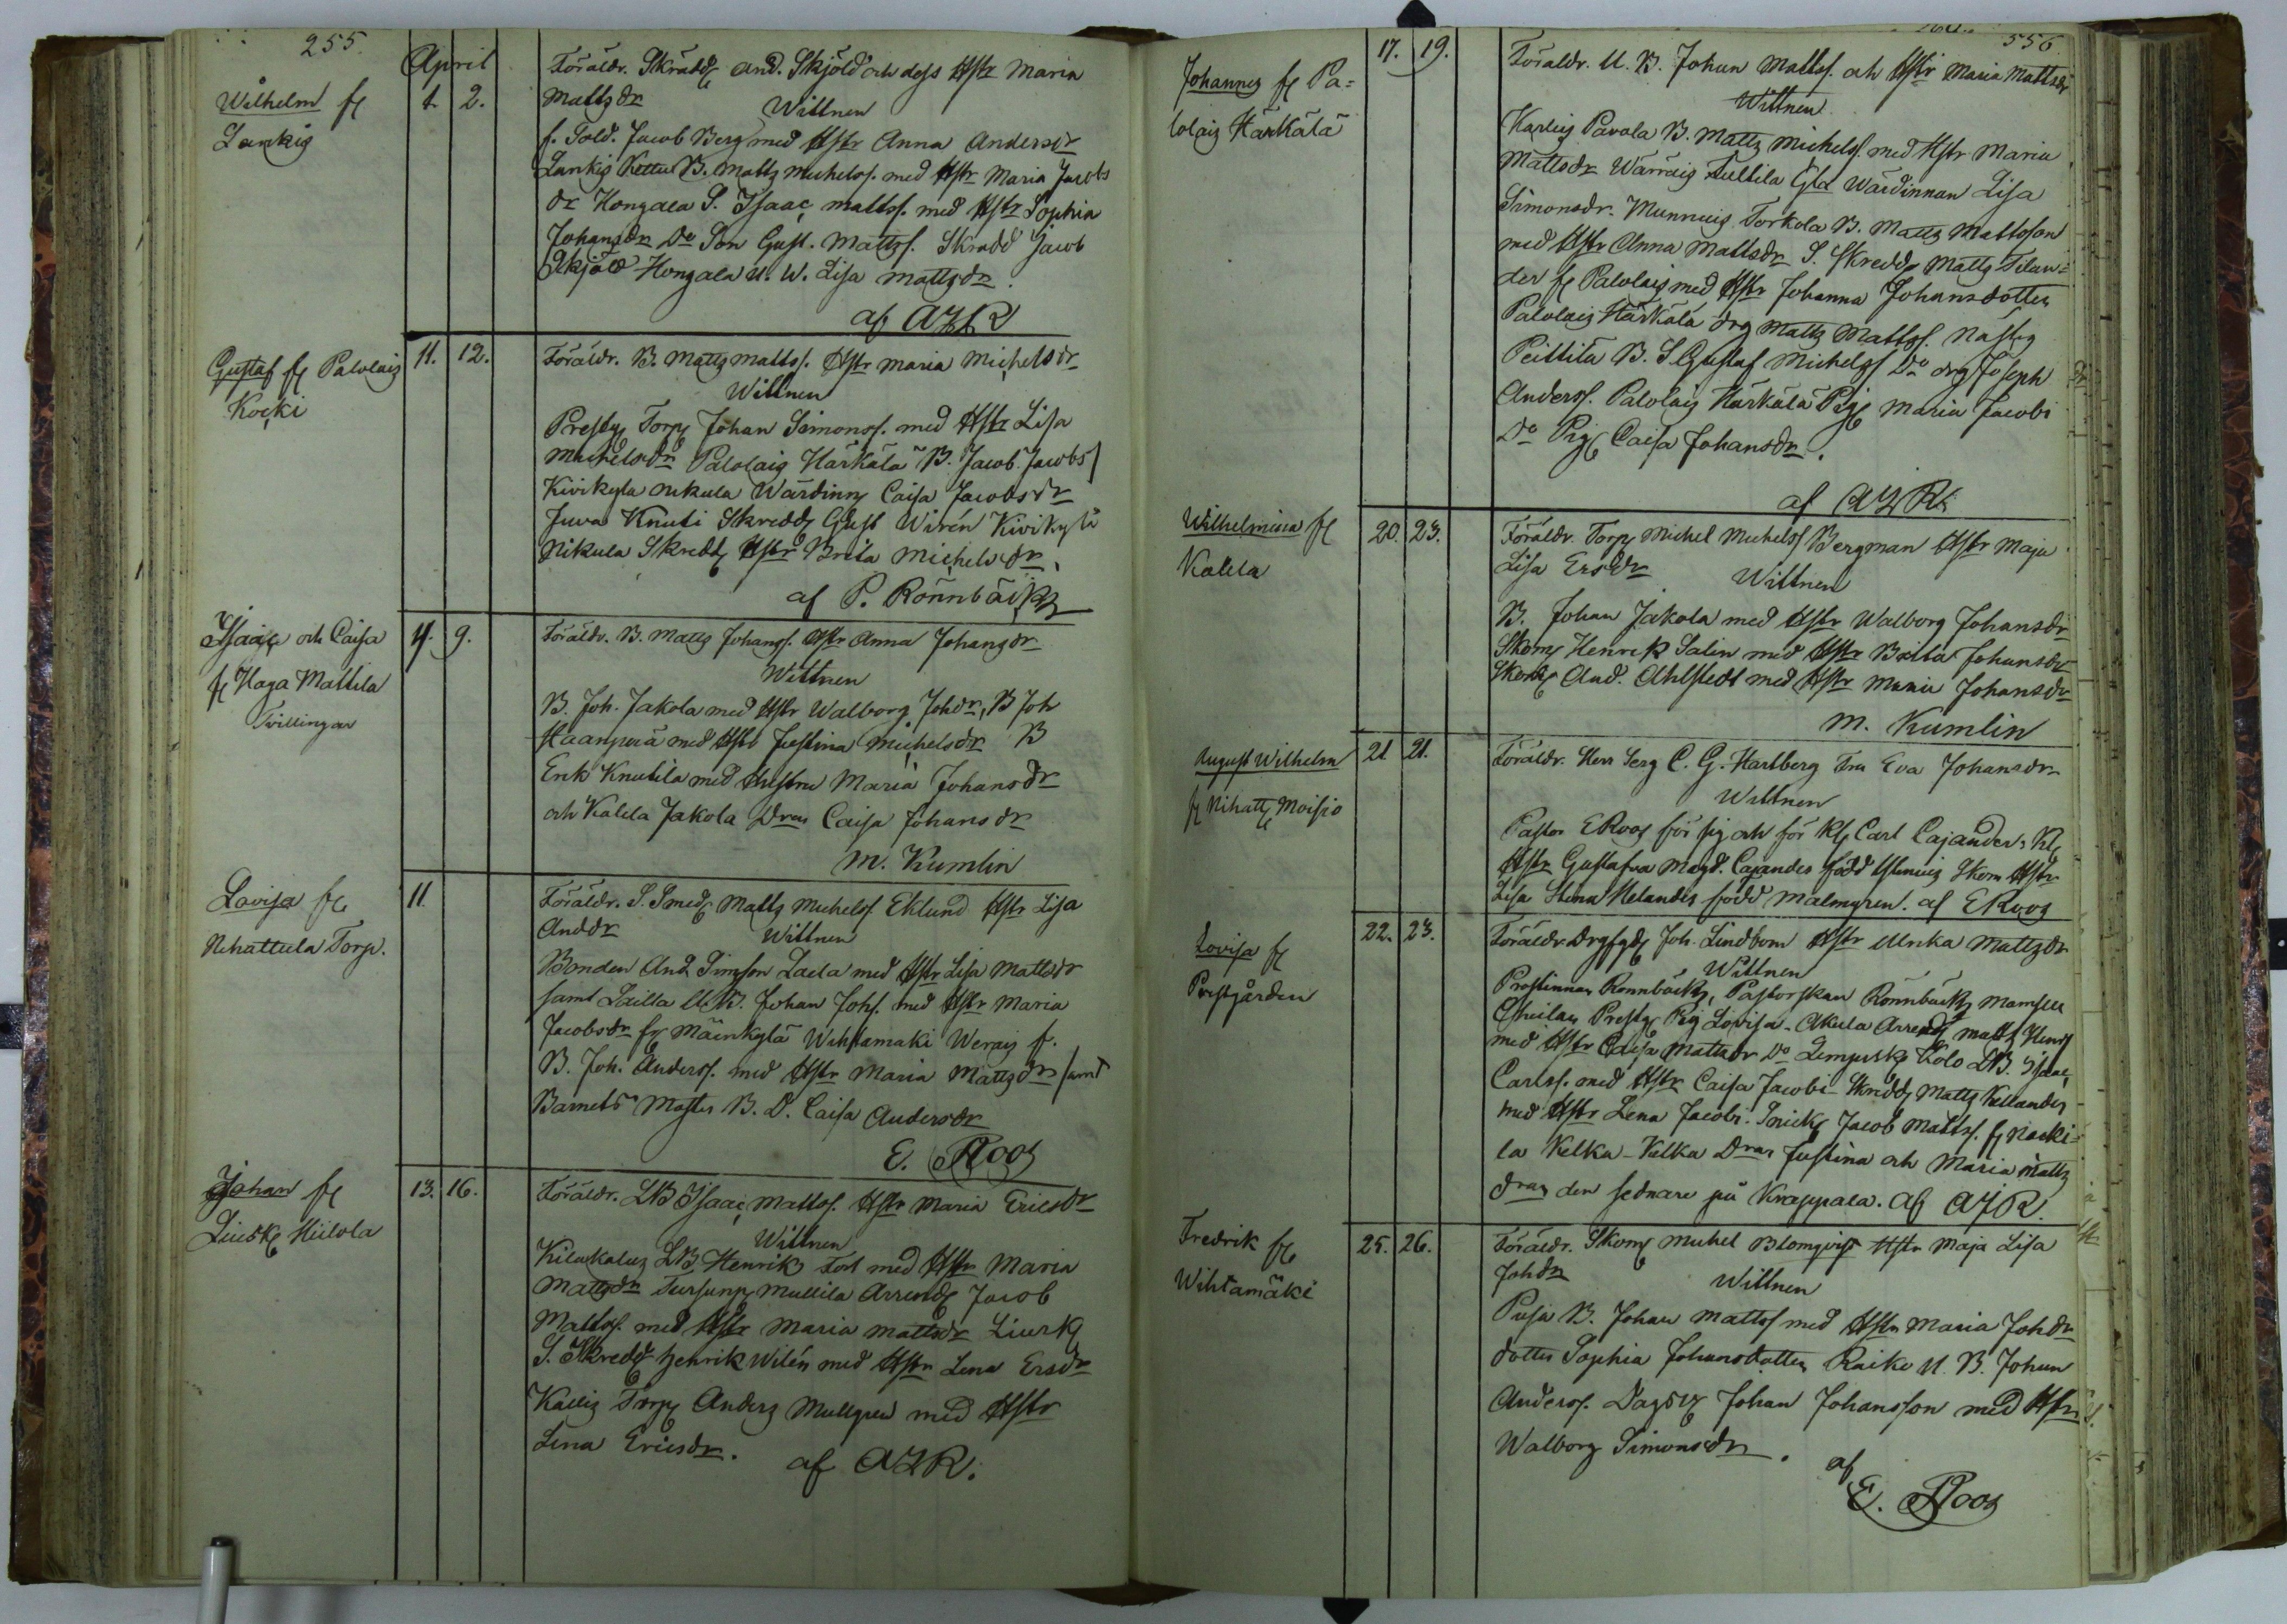 255.
April
Wilhelm fr
Lankis
1. 2.
Föräldr. Skrädd And. Skjöld och dess Hstr Maria
Mattsdr
Wittnen
f. Sold. Jacob Berg med Hstr Anna Andersdr
Lankis Kettu B. Matts Michelss. med Hstr Maria Jacobs
dr Hongala S. Isaac Mattss. med Hstr Sophia
Johansdr Do Son Gust. Mattss. Skrädd Jacob
Skjöld Hongala U. W. Lisa Mattsdr.
af AJR
Gustaf fr Palolais
Kocki
11. 12.
Föräldr. B. Matts Mattss. Hstr Maria Michelsdr
Wittnen
Prestg Torp Johan Simonss. med Hstr Lisa
Michelsdr Palolais Härkälä B. Jacob Jacobs
Kivikylä Nikula Wärdinn Caisa Jacobsdr
Juva Knuti Skredd Gust Wirén Kivikylä
Nikula Skredd Hstr Brita Michelsdr,
af P. Rönnbäck
Isaac och Caisa
fr Haga Mattila
Tvillingar
4. 9.
Föräldr. B. Matts Johanss. Hstr Anna Johansdr
Wittnen
B. Joh. Jakola med Hstr Walborg Johdr, B Joh
Haanperä med Hstr Justina Michelsdr B
Erik Knutila med Hustru Maria Johansdr
och Kalela Jakola Dran Caisa Johansdr
M. Kumlin
Lovisa fr
Nihattula Torp.
11.
Föräldr. S. Smed Matts Michelss. Eklund Hstr Lisa
Anddr
Wittnen
Bonden And Simsson Laela med Hstr Lisa Mattsdr
samt Lailla U. B. Johan Johs. med Hstr Maria
Jacobsdr fr Mäenkylä Wihtamäki Werais f.
B. Joh. Anderss. med Hstr Maria Mattsdr samt
Barnets Moster B. D. Caisa Andersdr
E. Roos
Johan fr
Liusk Hiilola
13. 16.
Föräldr. LB Isaac Mattss. Hstr Maria Ericsdr
Wittnen
LB Henrik Fort med Hstr Maria
Mattsdr Tursunp Mullila Arrend Jacob
Mattss. med Hstr Maria Mattsdr Liusk
S. Skredd Henrik Wilén med Hstr Lena Ersdr
Torp Anders Mullgren med Hstr
Lena Ericsdr.
af AJR.
556.
Johannes fr Pa=
lolais Härkälä
17. 19.
Föräldr. U. B. Johan Mattss. och Hstr Maria Mattsdr
Wittnen
Karlis Pavola B. Matts Michelss. med Hstr Maria
Mattsdr Wärräis Tultila Gla Wärdinnan Lisa
Simonsdr. Munnuis Torkola B. Matts Mattsson
med Hstr Anna Mattsdr S. Skredd Matts Tilan=
der fr Palolais med Hstr Johanna Johansdotter
Palolais Härkälä drg Matts Mattss. Nästis
Peittilä B. S Gustaf Michelss Do drg Joseph
Anderss. Palolais Härkälä Pig Maria Jacobi
Do Pig Caisa Johansdr.
af AJR.
Wilhelmina fr
Kalela
20. 23.
Föräldr. Torp Michel Michelss Bergman Hstr Maja
Lisa Ersdr
Wittnen
B. Johan Jakola med Hstr Walborg Johansdr
Skom Henrik Salin med Hstr Britta Johansdr
And. Ahlstedt med Hstr Maria Johansdr
M. Kumlin
August Wilhelm
fr Nihatt Moisio
21. 21.
Föräldr. Herr Serg C. G. Hartberg Fru Eva Johansdr
Wittnen
Pastor E Roos för sig och för Carl Cajander,
Hstr Gustafva Magd. Cajander född Skom Hstr
Lisa Stina Helander född Malmgren. af E Roos
Lovisa fr
Prestgården
22. 23.
Föräldr. Joh. Lindbom Hstr Ulrika Mattsdr
Wittnen
Prostinnan Rönnbäck, Pastorskan Rönnbäck Mamsell
Prestg Pig Lovisa - Akula Arrend Matts Henr
med Hstr Caisa Mattsdr Do Lempusk Kolo LB. Isaac
Carlss. med Hstr Caisa Jacobi Skredd Matts Kellander
med Hstr Lena Jacobi. Snick Jacob Mattss. fr Nacki=
la Kelka - Kelka Drar Justina och Maria Matts
drar den sednare på Knappala. af AJR.
Fredrik fr
Wihtamäki
25. 26.
Föräldr. Skom Michel Blomqvist Hstr Maja Lisa
Johdr
Wittnen
Pusa B. Johan Mattss med Hstr Maria Johdr
dotter Sophia Johansdotter Raike U. B. Johan
Anderss. Johan Johansson med Hstr
Walborg Simonsdr.
af
E. Roos